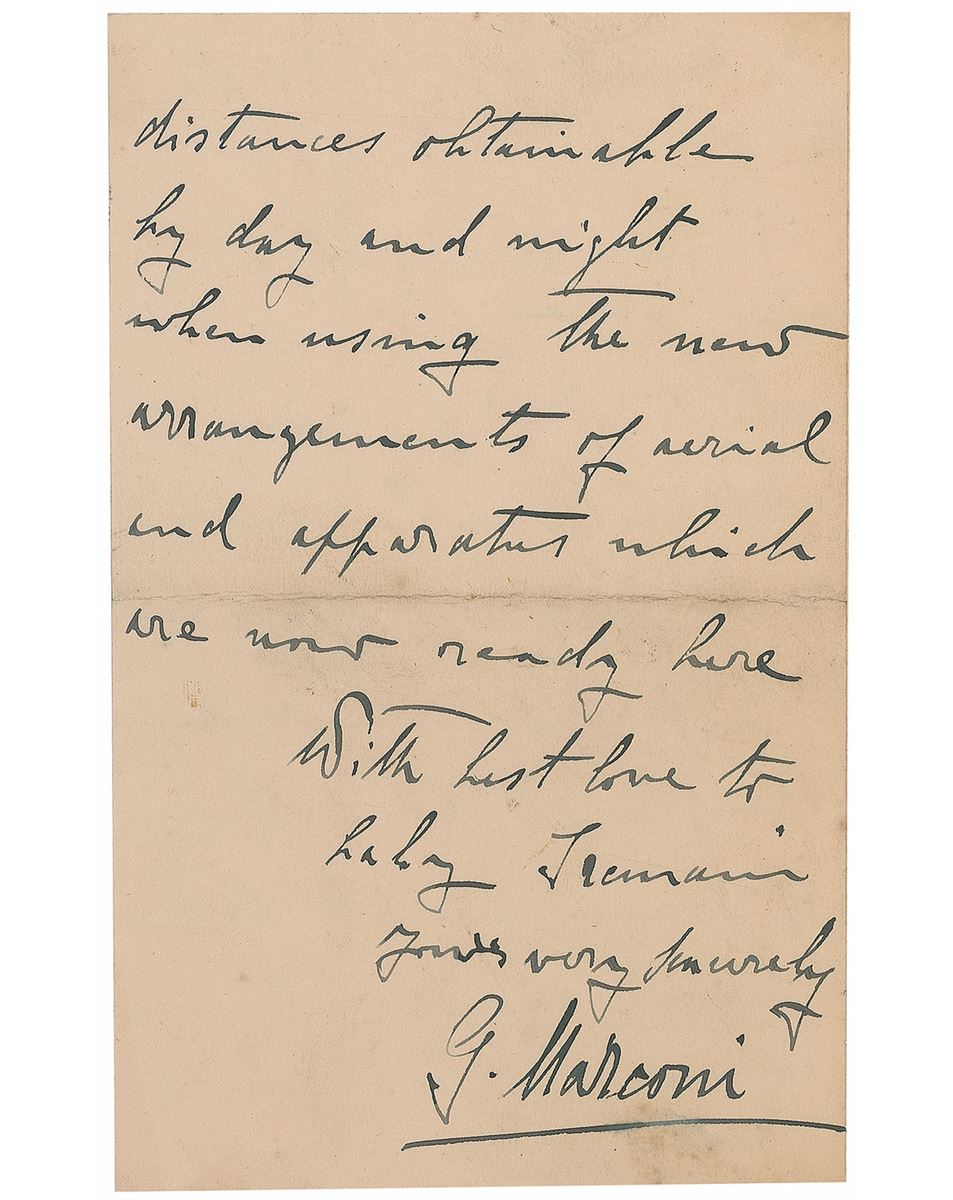 distances obtainable
by day and night
when using the new
arrangements of aerial
and apparatus which
are now ready here
With best love to
baby I remain
Yours very sincerely
G. Marconi